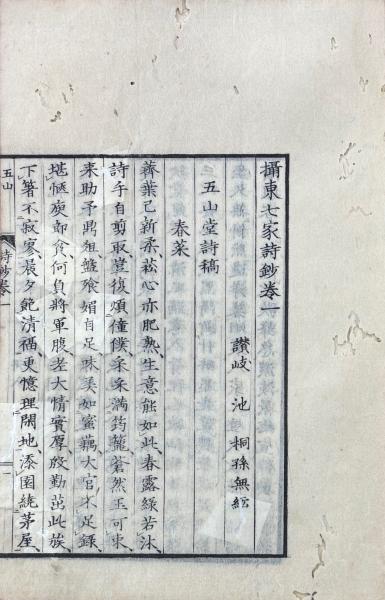 攝東七家詩鈔卷一
讃岐 池 桐孫無絃
五山堂詩稿
春菜
薺葉已新柔、菘心亦肥熟、生意能如此、春露綠若沐、
詩手自剪取、豈復煩僮僕、采采滿筠籠、蒼然玉可束、
来助予鼎俎、盤飱媚自足、味美如蜜藕、大官不足錄、
堪愜庾郎貧、何負將軍腹、老大情實厚、殷勤茁此族、
下箸不寂寥、晨夕飽清福、更憶理閑地、添園繞茅屋、
五山
詩鈔卷一